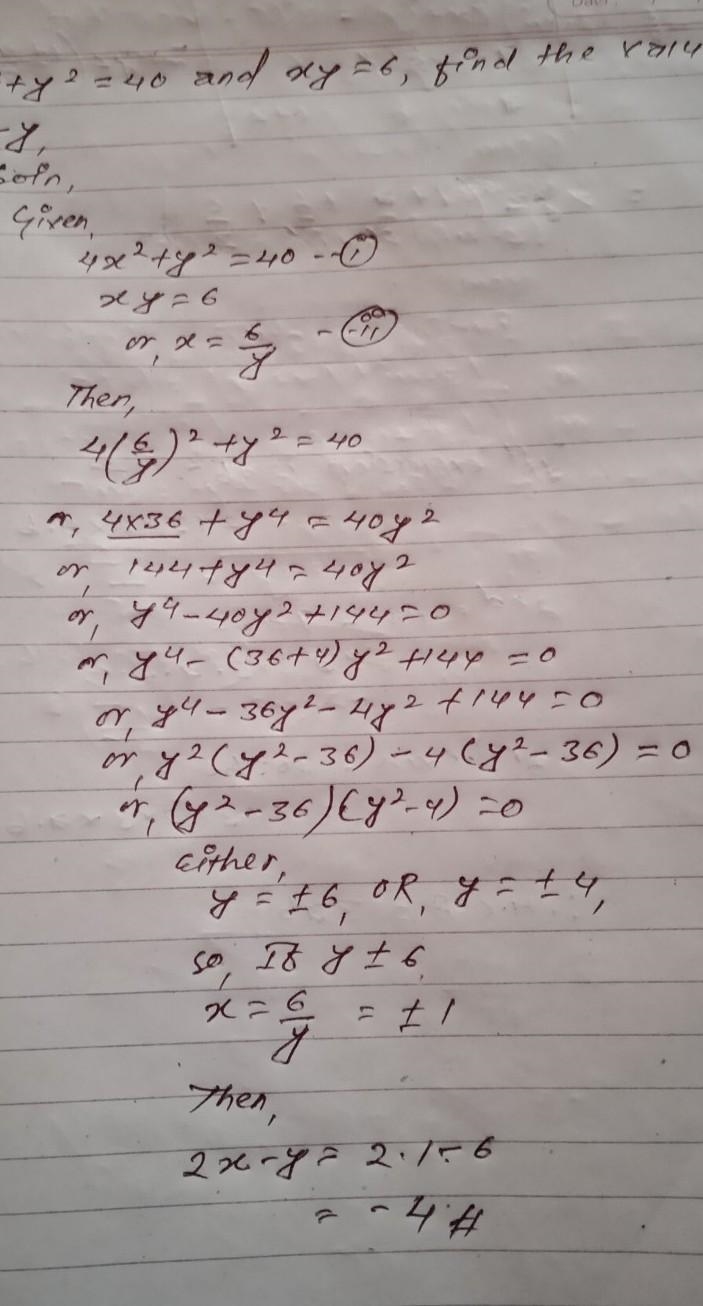 +y² = 40 and xy = 6, find the valu
-y,
Soln,
Given,
4x²+y² = 40 --(i)
xy = 6
or, x = 6/y - (ii)
Then,
4(6/y)² + y² = 40
or, 4×36 + y⁴ = 40y²
or, 144+y⁴ = 40y²
or, y⁴-40y²+144=0
or, y⁴- (36+4)y² +144 = 0
or, y⁴- 36y²- 4y² + 144 = 0
or, y²(y²-36) - 4(y²-36) = 0
or, (y²-36)(y²-4) = 0
Either,
y = ±6, OR, y = ±4,
so, If y ± 6,
x = 6/y = ±1
Then,
2x-y = 2·1-6
= -4 #